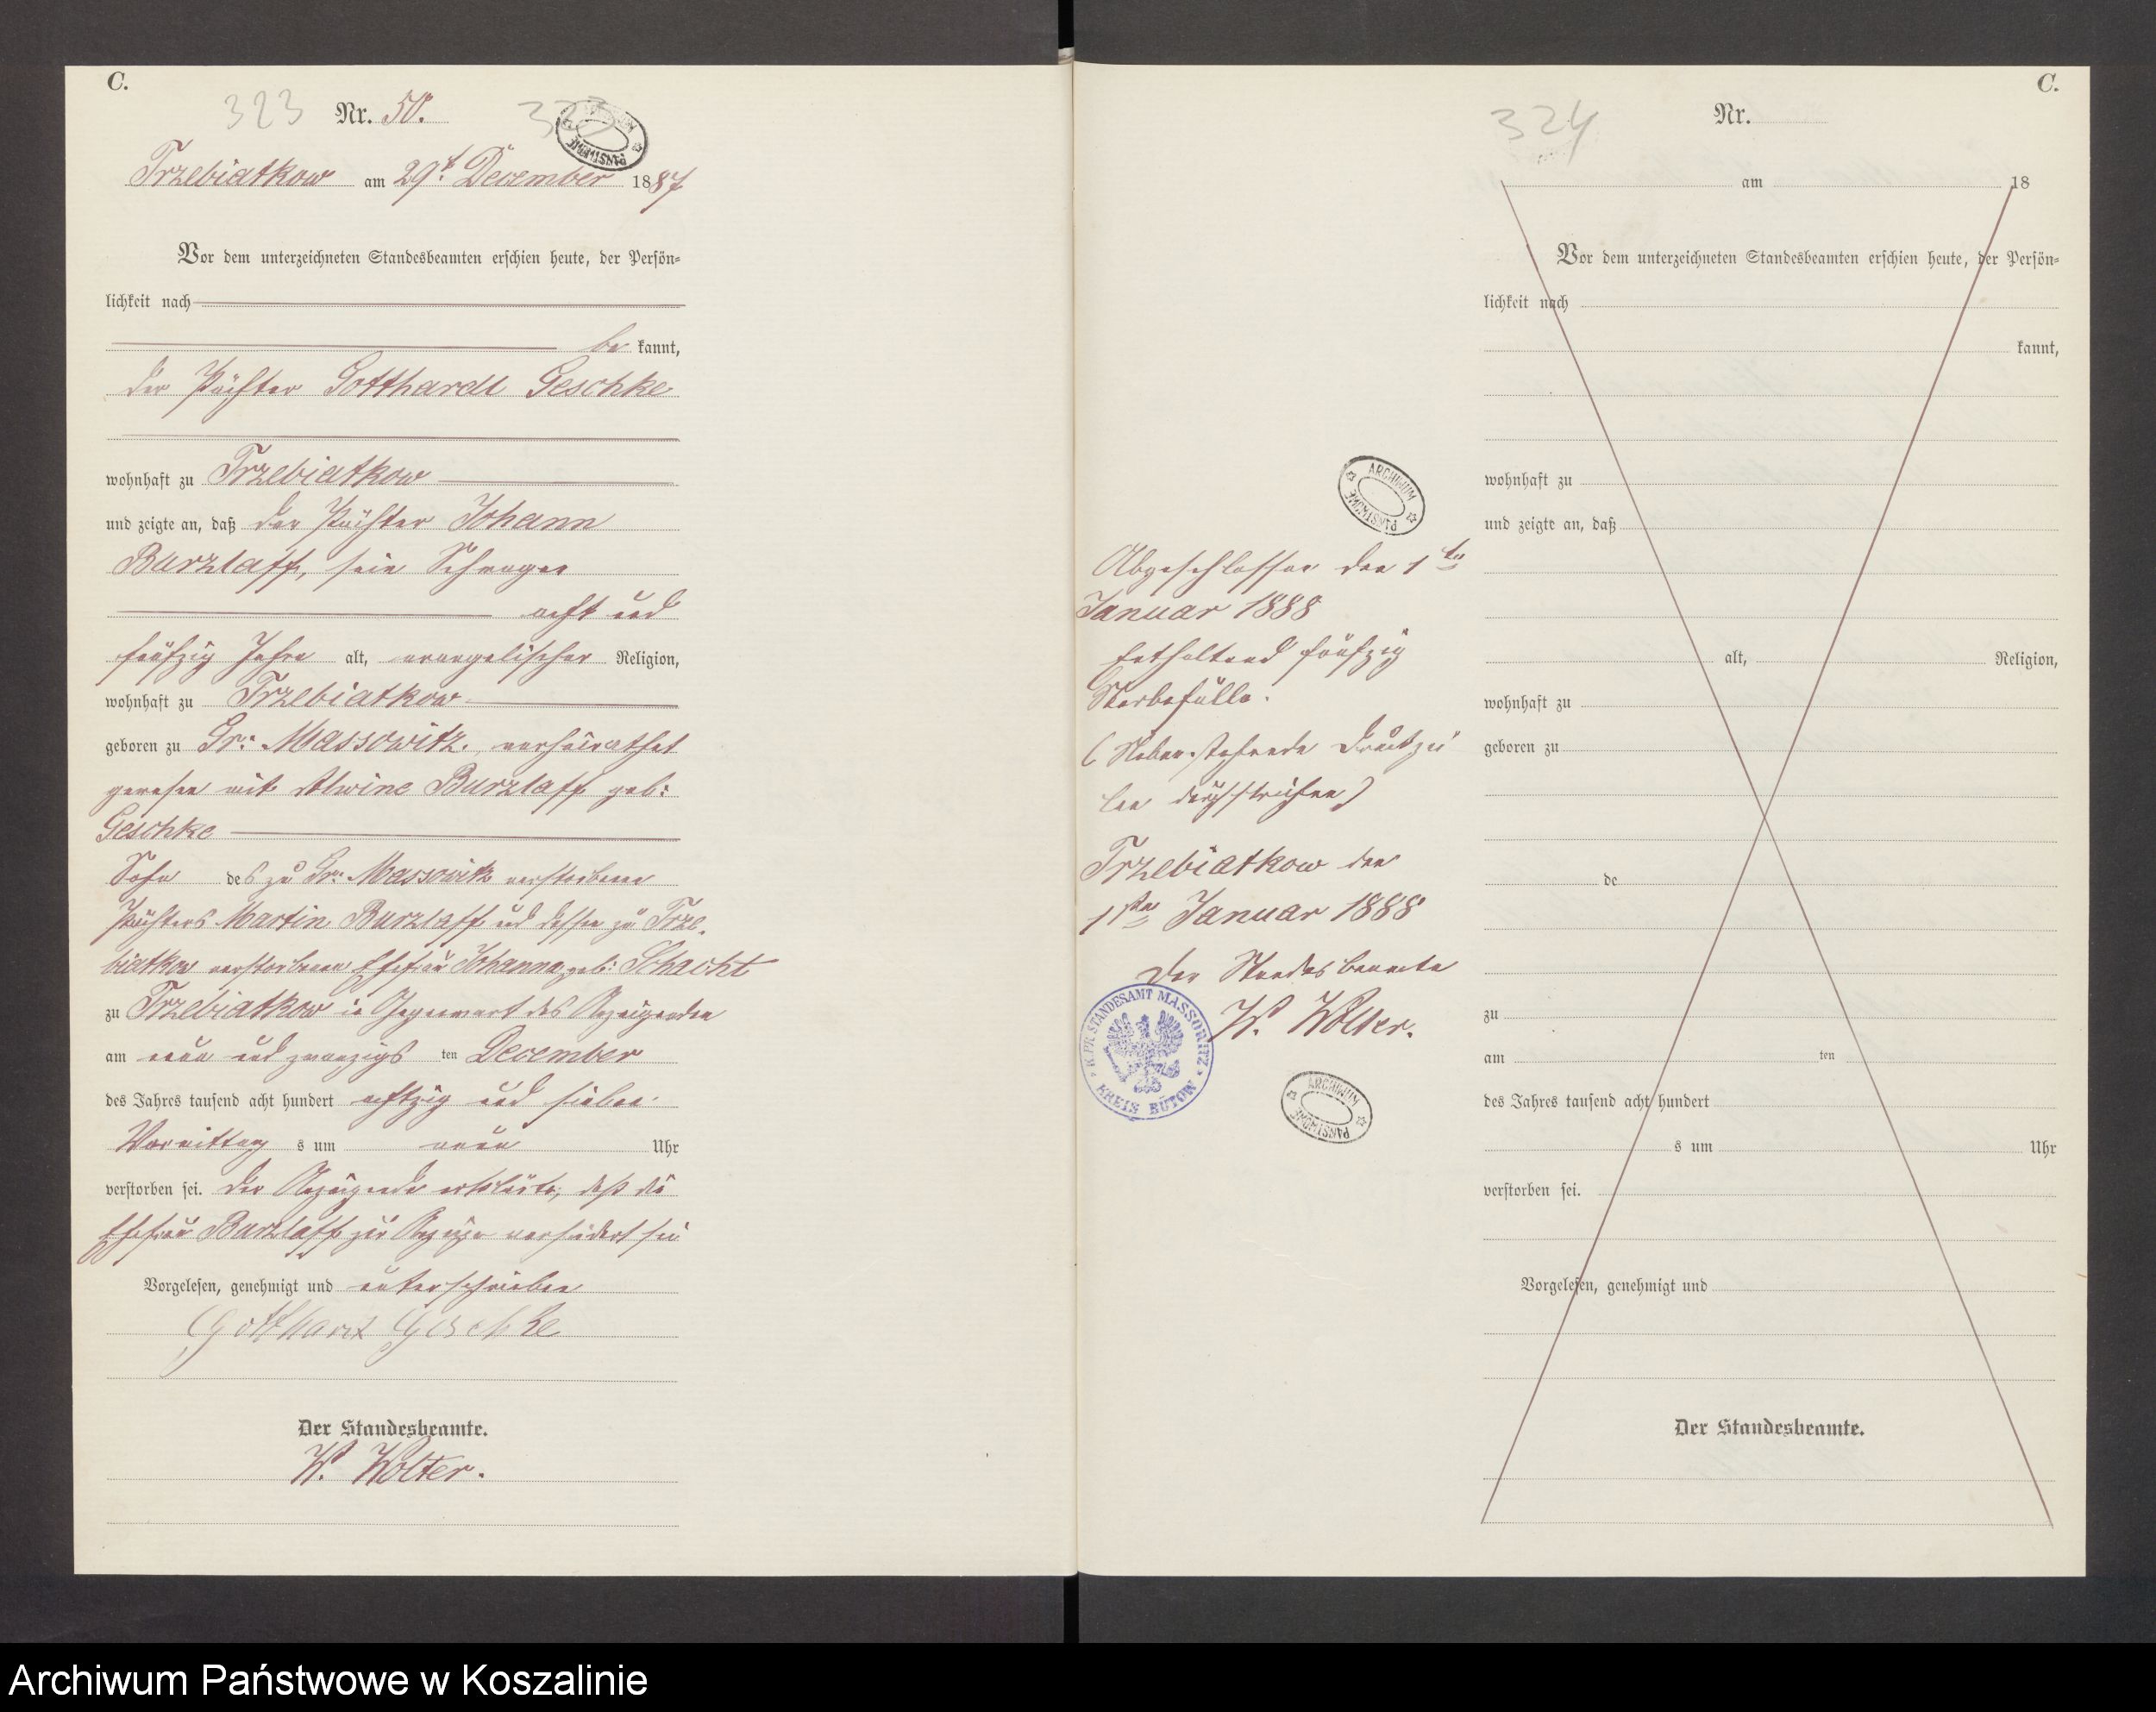 C.
323 Nr. 50. 323
ARCHIWUM PAŃSTWOWE
Trzebiatkow am 29t. December 1887
Vor dem unterzeichneten Standesbeamten erschien heute, der Persön-
lichkeit nach
be kannt,
der Pächter Gotthardt Geschke
wohnhaft zu Trzebiatkow
und zeigte an, daß der Pächter Johann
Burzlaff, sein Schwager
acht und
fünfzig Jahre alt, evangelischer Religion,
wohnhaft zu Trzebiatkow
geboren zu Gr: Massowitz, verheirathet
gewesen mit Alwine Burzlaff geb:
Geschke
Sohn des zu Gr: Massowitz verstorbenen
Pächters Martin Burzlaff und dessen zu Trze-
biatkow verstorbenen Ehefrau Johanna geb: Schacht
zu Trzebiatkow in Gegenwart des Anzeigenden
am neun und zwanzigs ten December
des Jahres tausend acht hundert achtzig und sieben
Vormittag s um neun Uhr
verstorben sei. Der Anzeigende erklärte, daß die
Ehefrau Burzlaff zur Anzeige verhindert sei
Vorgelesen, genehmigt und unterschrieben
Gotthard Geschke
Der Standesbeamte.
W. Wolter.
ARCHIWUM PAŃSTWOWE
Abgeschlossen den 1ten
Januar 1888
Enthaltend fünfzig
Sterbefälle.
(Nebenstehende Druckzei
len durchstrichen)
Trzebiatkow den
1ten Januar 1888
Der Standesbeamte
W. Wolter.
K. PR. STANDESAMT MASSOWITZ
KREIS BÜTOW
ARCHIWUM PAŃSTWOWE
C.
324 Nr.
am 18
Vor dem unterzeichneten Standesbeamten erschien heute, der Persön-
lichkeit nach
kannt,
wohnhaft zu
und zeigte an, daß
alt, Religion,
wohnhaft zu
geboren zu
de
zu
am ten
des Jahres tausend acht hundert
s um Uhr
verstorben sei.
Vorgelesen, genehmigt und
Der Standesbeamte.
Archiwum Państwowe w Koszalinie